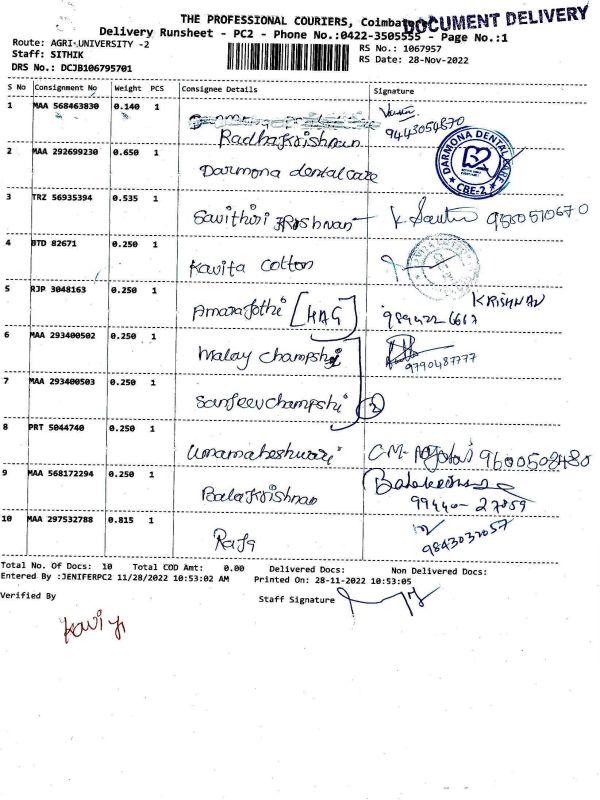 THE PROFESSIONAL COURIERS, Coimbatore
DOCUMENT DELIVERY
Delivery Runsheet - PC2 - Phone No.:0422-3505555 - Page No.:1
Route: AGRI-UNIVERSITY -2
RS No.: 1067957
Staff: SITHIK
RS Date: 28-Nov-2022
DRS No.: DCJB106795701
S No Consignment No Weight PCS Consignee Details Signature
1 MAA 568463830 0.140 1
Radha Krishnan 9443054870
2 MAA 292699230 0.650 1
Darmona dental care
DARMONA DENTAL CARE
CBE-2
3 TRZ 56935394 0.535 1
Savithiri Krishnan 9560510670
4 BTD 82671 0.250 1
Kavita cotton
5 RJP 3048163 0.250 1
Amarajothi [HAG] KRISHNAN
6 MAA 293400502 0.250 1
Malay champshi 9790487777
7 MAA 293400503 0.250 1
Sanjeev champshi 2
8 PRT 5044740 0.250 1
Umamaheshwari 9600508480
9 MAA 568172294 0.250 1
Bala Krishnan
99440-27859
10 MAA 297532788 0.815 1
Raja 9843032057
Total No. Of Docs: 10 Total COD Amt: 0.00 Delivered Docs: Non Delivered Docs:
Entered By :JENIFERPC2 11/28/2022 10:53:02 AM Printed On: 28-11-2022 10:53:05
Verified By Staff Signature